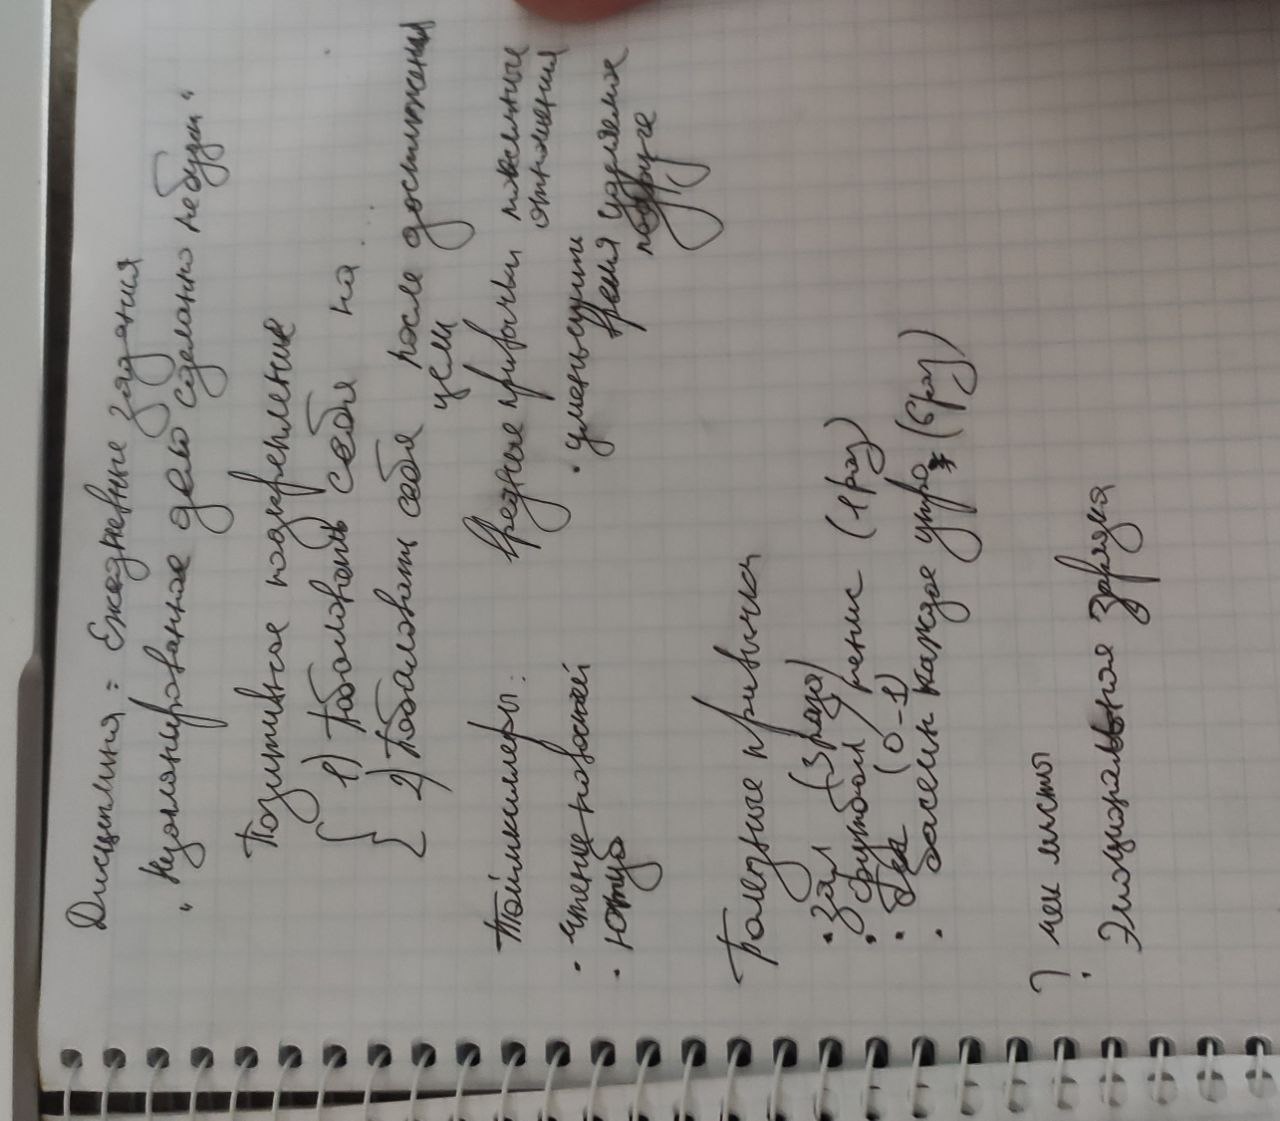 Дисциплина = Ежедневные задания
"Незапланированное дело сделано не будет"
Позитивное подкрепление
1) Побаловать себя на ...
2) Побаловать себя после достижения
цели
Таймкиллеры:
• чтение новостей
• ютуб
Вредные привычки
• уменьшить
время уделяемое
подруге
отношения
Полезные привычки
• зал (3 раза)
• футбол/теннис (1 раз)
• бег (0-1)
• басеин каждое утро (6 раз)
? чек листы
Эмоциональная зарядка